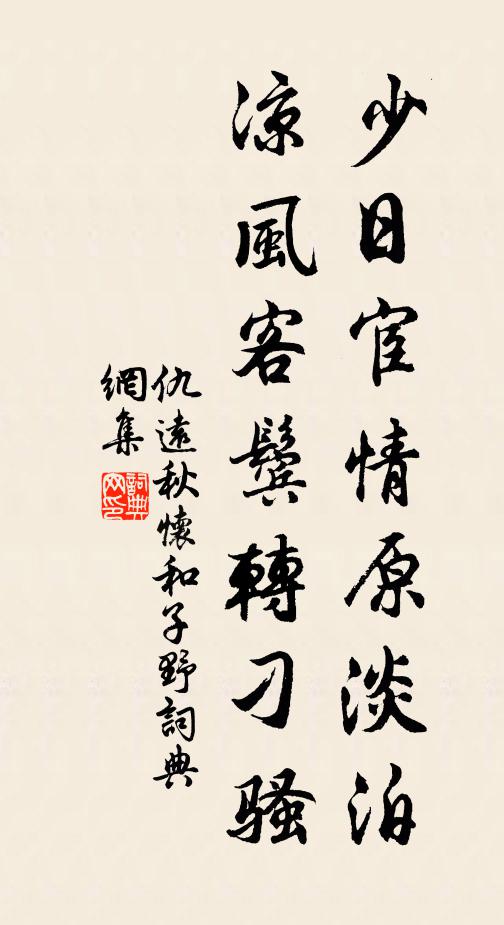 少日宦情原淡泊
凉風客鬢轉刁骚
仇遠秋懷和子野詞典
網集
詞典
网印